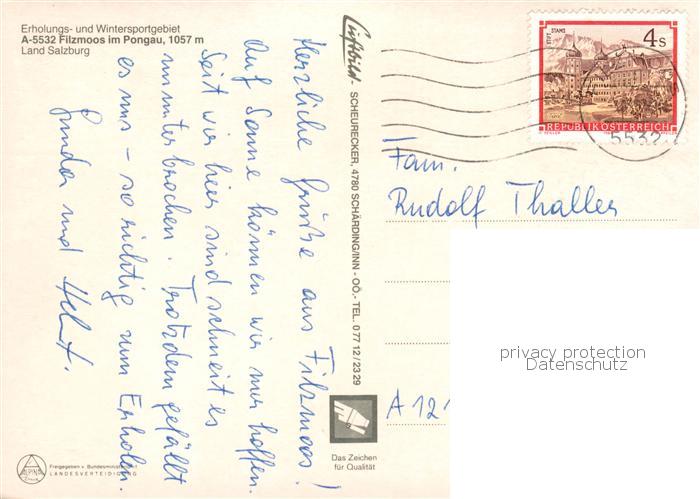 Erholungs- und Wintersportgebiet
A-5532 Filzmoos im Pongau, 1057 m
Land Salzburg
Herzliche Grüße aus Filzmoos!
Auf Sonne können wir nur hoffen.
Seit wir hier sind schneit es
ununterbrochen. Trotzdem gefällt
es uns – so richtig zum Erholen.
und Helmut.
Luftbild- SCHEURECKER, 4780 SCHÄRDING/INN - OÖ. - TEL. 0 77 12 / 23 29
Das Zeichen
für Qualität
ALPINA
Freigegeben v. Bundesministerium f.
LANDESVERTEIDIGUNG
STIFT STAMS
4 S
REPUBLIK ÖSTERREICH
5532
Fam.
Rudolf Thaller
privacy protection
Datenschutz
A 121